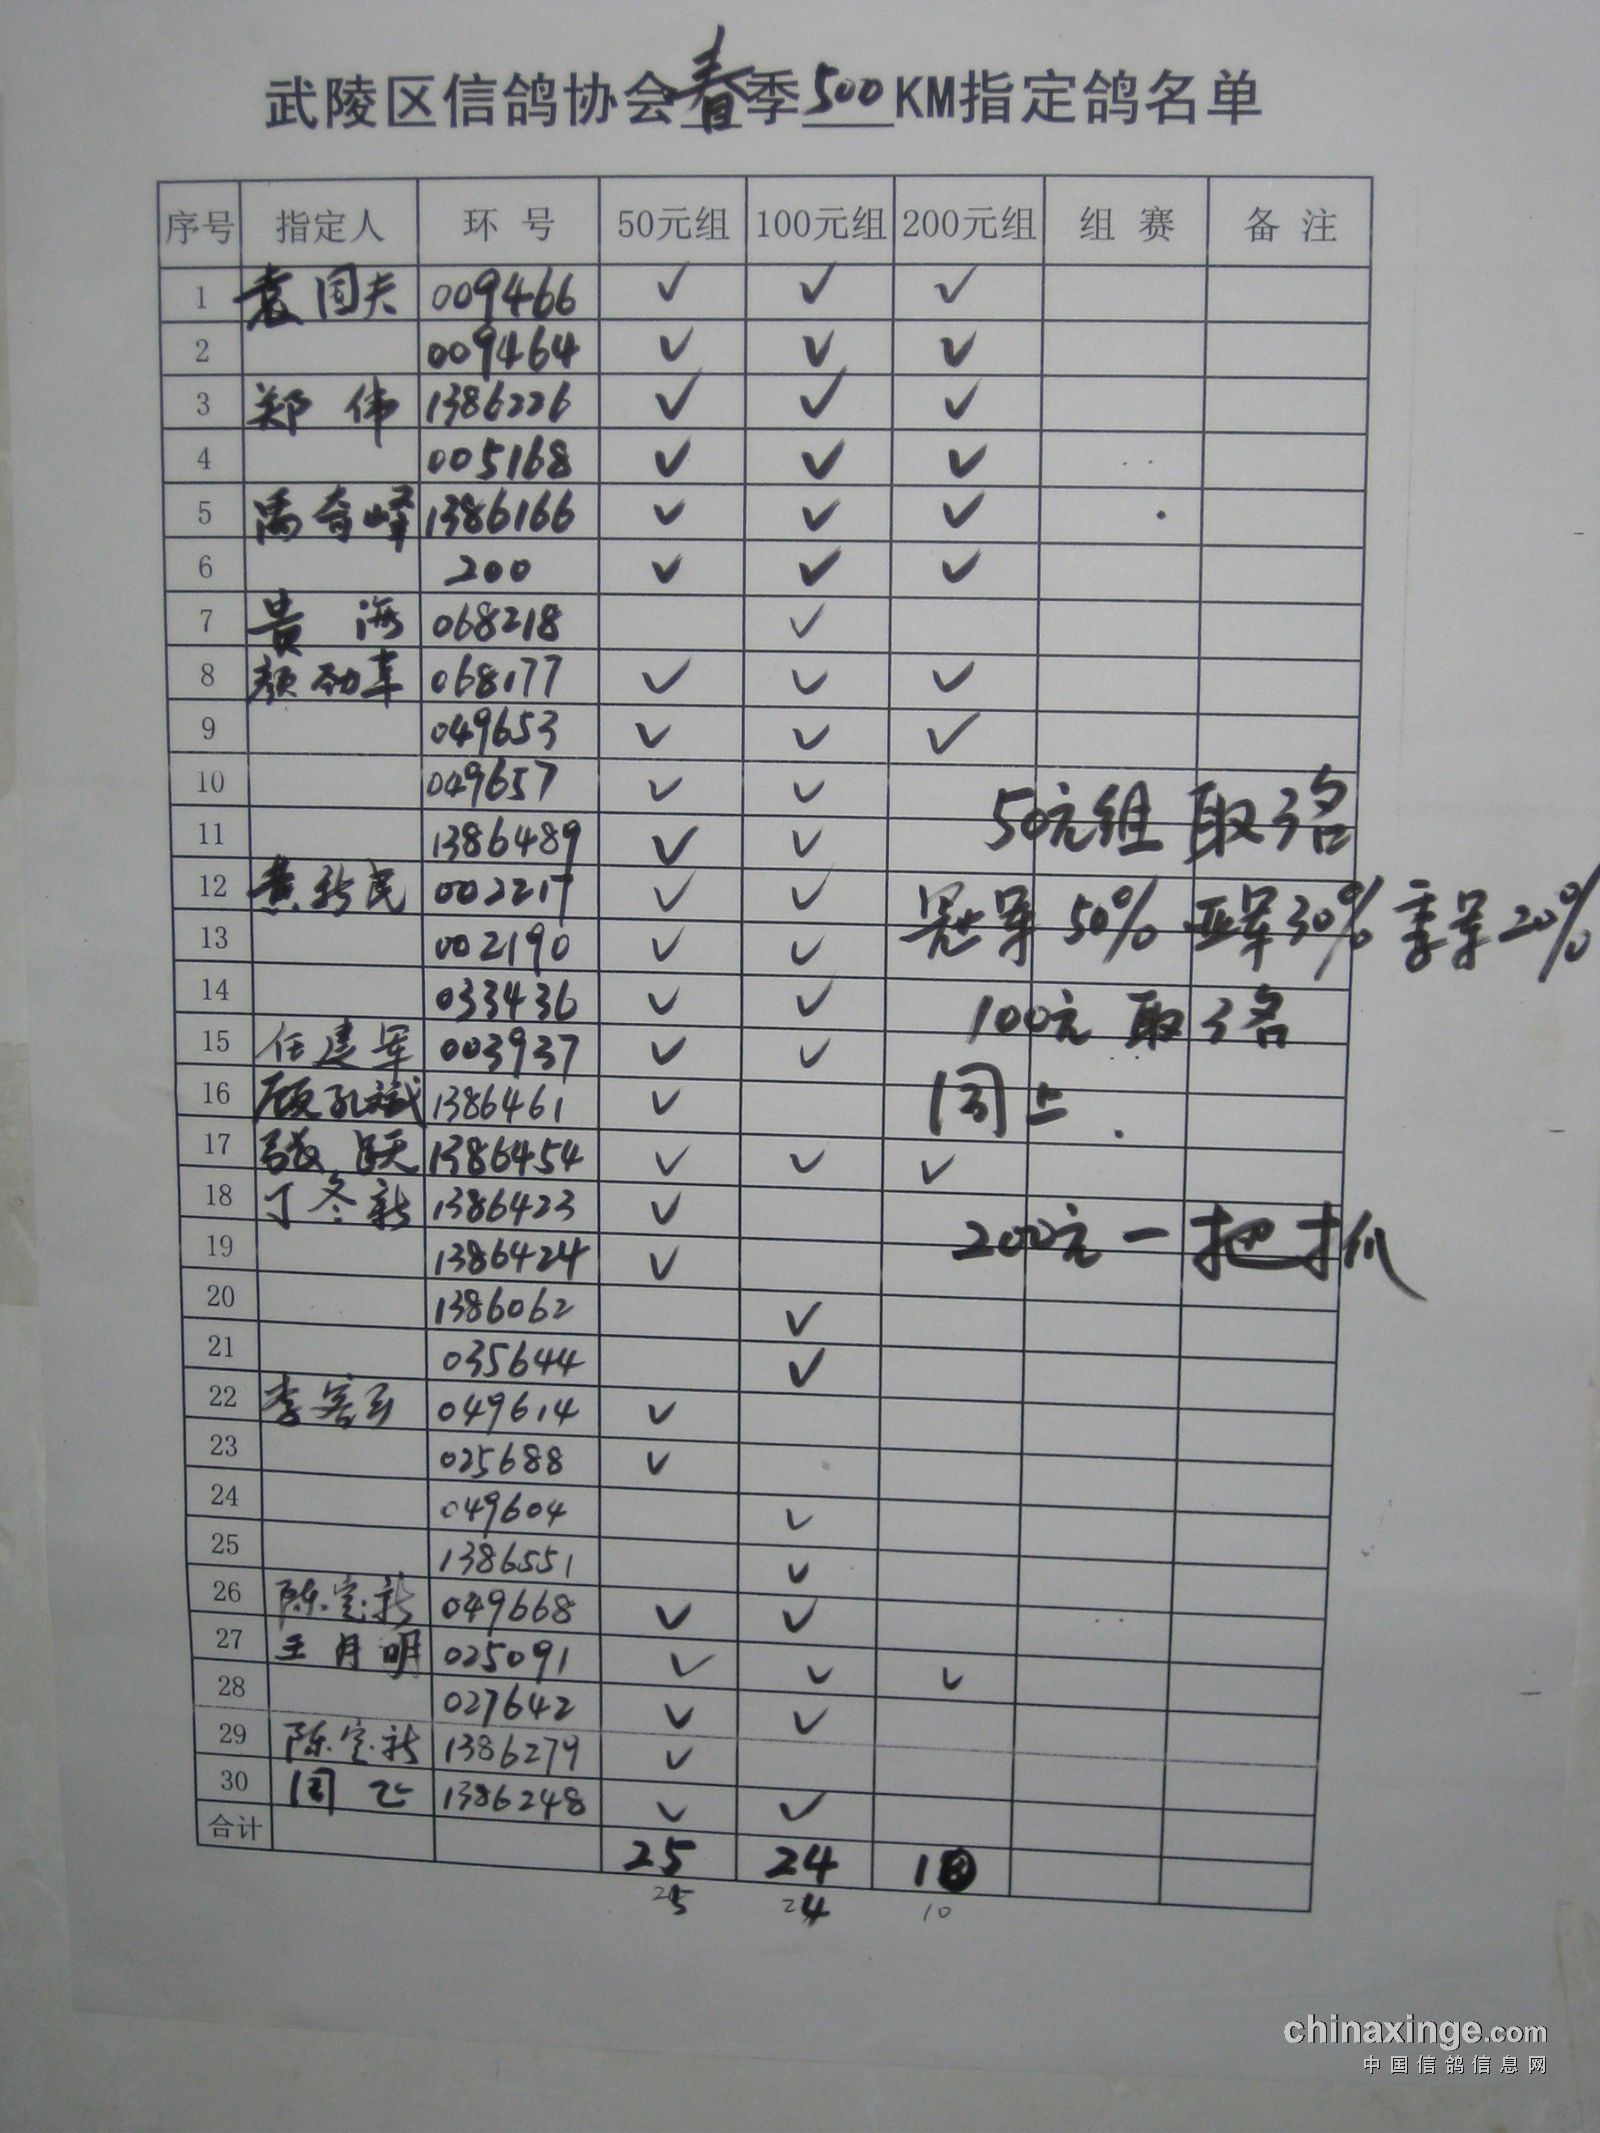 武陵区信鸽协会春季500KM指定鸽名单
序号 指定人 环号 50元组 100元组 200元组 组赛 备注
1 袁国夫 009466 ✓ ✓ ✓
2 009464 ✓ ✓ ✓
3 郑伟 1386226 ✓ ✓ ✓
4 005168 ✓ ✓ ✓
5 禹奇峰 1386166 ✓ ✓ ✓
6 200 ✓ ✓ ✓
7 贵海 068218 ✓
8 颜劲草 068177 ✓ ✓ ✓
9 049653 ✓ ✓ ✓
10 049657 ✓ ✓
50元组 取3名
11 1386489 ✓ ✓
12 黄新民 002217 ✓ ✓
冠军50% 亚军30% 季军20%
13 002190 ✓ ✓
14 033436 ✓ ✓
100元 取3名
15 任建军 003937 ✓ ✓
16 顾孔斌 1386461 ✓
同上
17 张跃 1386454 ✓ ✓ ✓
18 丁冬新 1386423 ✓
200元一把抓
19 1386424 ✓
20 1386062 ✓
21 035644 ✓
22 李 049614 ✓
23 025688 ✓
24 049604 ✓
25 1386551 ✓
26 陈定新 049668 ✓ ✓
27 王月明 025091 ✓ ✓ ✓
28 027642 ✓ ✓
29 陈定新 1386279 ✓
30 周飞 1386248 ✓ ✓
合计 25 24 10
25 24 10
chinaxinge.com
中国信鸽信息网